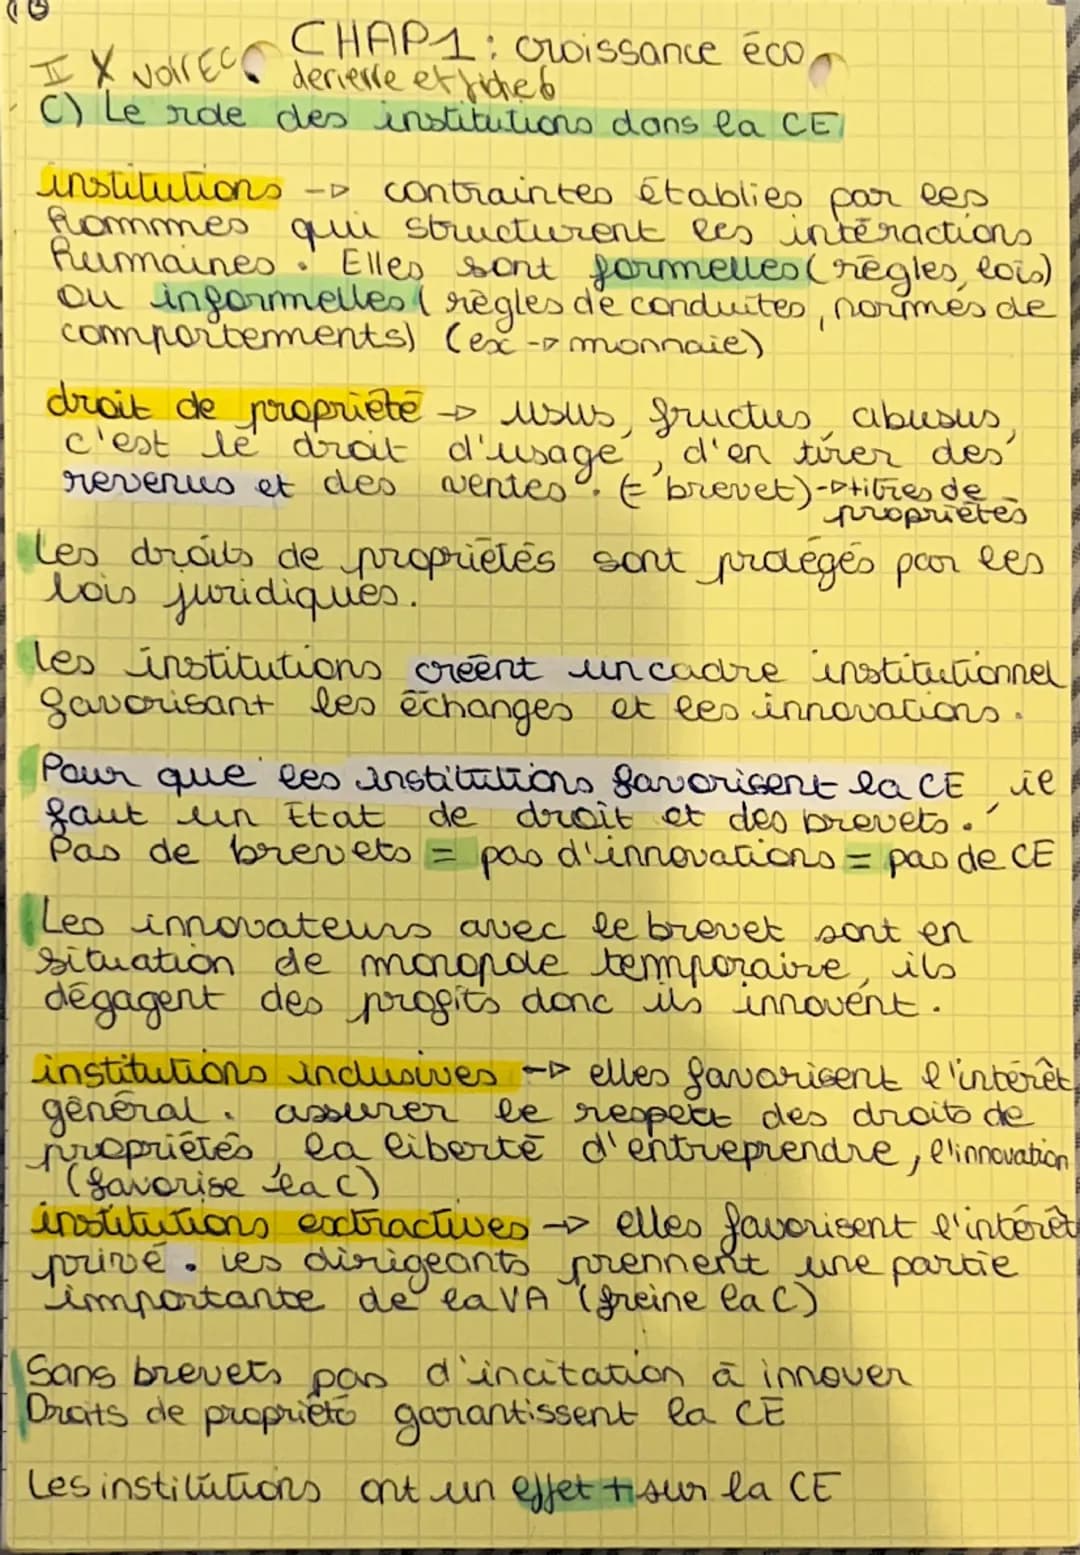 CHAP1 : croissance éco
II X voir EC derierre et fiche 6
C) Le role des institutions dans la CE
institutions -> contraintes établies par les
hommmes qui structurent les intéractions
humaines. Elles sont formelles (règles, lois)
ou informelles (règles de conduites, normes de
comportements) (ex -> monnaie)
droit de propriété -> usus, fructus, abusus,
c'est le droit d'usage, d'en tirer des
revenus et des ventes. (= brevet) -> titres de
propriétés
Les droits de propriétés sont protégés par les
lois juridiques.
Les institutions créent un cadre institutionnel
favorisant les échanges et les innovations.
Pour que les institutions favorisent la CE, il
faut un Etat de droit et des brevets.
Pas de brevets = pas d'innovations = pas de CE
Les innovateurs avec le brevet sont en
situation de monopole temporaire, ils
dégagent des profits donc ils innovent.
institutions inclusives -> elles favorisent l'intérêt
général. assurer le respect des droits de
propriétés, la liberté d'entreprendre, l'innovation
(favorise la C)
institutions extractives -> elles favorisent l'intérêt
privé. les dirigeants prennent une partie
importante de la VA (freine la C)
Sans brevets pas d'incitation à innover
Droits de propriété garantissent la CE
Les institutions ont un effet + sur la CE